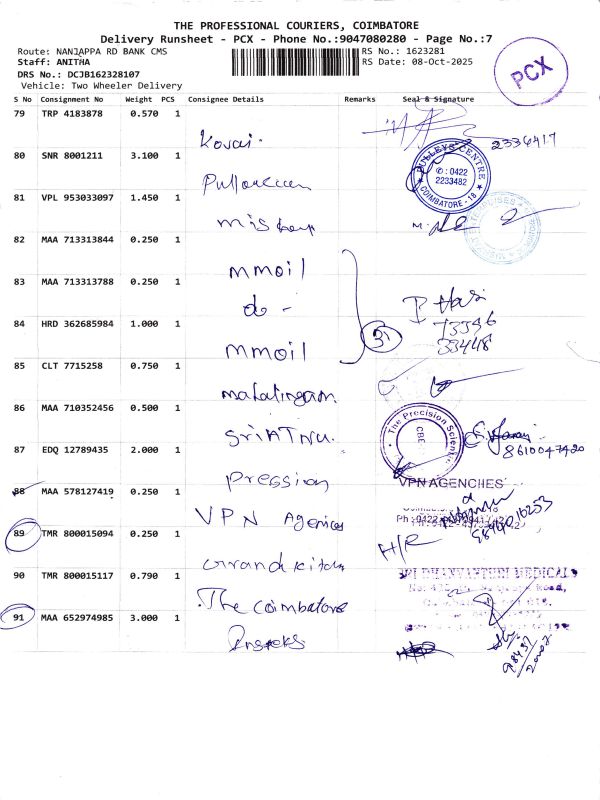 THE PROFESSIONAL COURIERS, COIMBATORE
Delivery Runsheet - PCX - Phone No.:9047080280 - Page No.:7
Route: NANJAPPA RD BANK CMS
RS No.: 1623281
Staff: ANITHA
RS Date: 08-Oct-2025
DRS No.: DCJB162328107
Vehicle: Two Wheeler Delivery
PCX
S No Consignment No Weight PCS Consignee Details Remarks Seal & Signature
79 TRP 4183878 0.570 1
Kovai
2336417
80 SNR 8001211 3.100 1
PULLEYS CENTRE
✆: 0422
2233482
COIMBATORE - 18
81 VPL 953033097 1.450 1
82 MAA 713313844 0.250 1
mmoil
83 MAA 713313788 0.250 1
do -
3
I Hasi
73396
33448
84 HRD 362685984 1.000 1
mmoil
85 CLT 7715258 0.750 1
mahalingam
86 MAA 710352456 0.500 1
The Precision Scientific
CBE
8610047420
87 EDQ 12789435 2.000 1
pression
VPN AGENCIES
88 MAA 578127419 0.250 1
VPN Agencies
Ph : 0422
89 TMR 800015094 0.250 1
H/R
Grand kitchen
90 TMR 800015117 0.790 1
SRI DHANVANTHRI MEDICALS
The Coimbatore
91 MAA 652974985 3.000 1